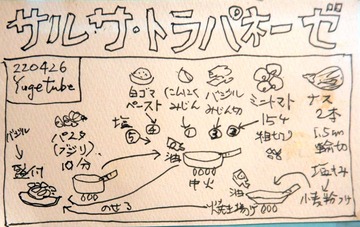 サルサ・トラパネーゼ
220426
Yugetube
白ゴマ
ペースト
にんにく
みじん
バジル
みじん切
ミニトマト
15ケ
粗切り
ナス
2本
1.5cm
輪切
塩もみ
小麦粉つけ
油
焼き揚げ
塩
⑤
④
①
②
③
油
中火
パスタ
(フジリ)
10分
バジル
盛付
のせる